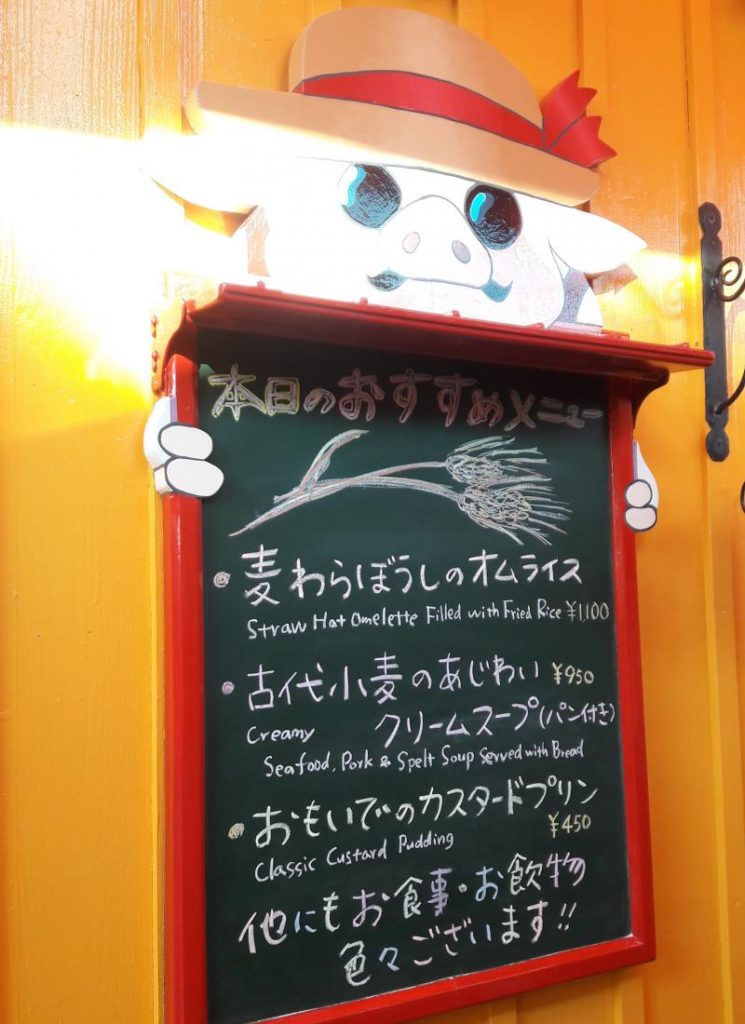 本日のおすすめメニュー
・麦わらぼうしのオムライス
Straw Hat Omelette Filled with Fried Rice ¥1,100
・古代小麦のあじわい ¥950
Creamy クリームスープ(パン付き)
Seafood, Pork & Spelt Soup Served with Bread
・おもいでのカスタードプリン
Classic Custard Pudding ¥450
他にもお食事・お飲物
色々ございます!!